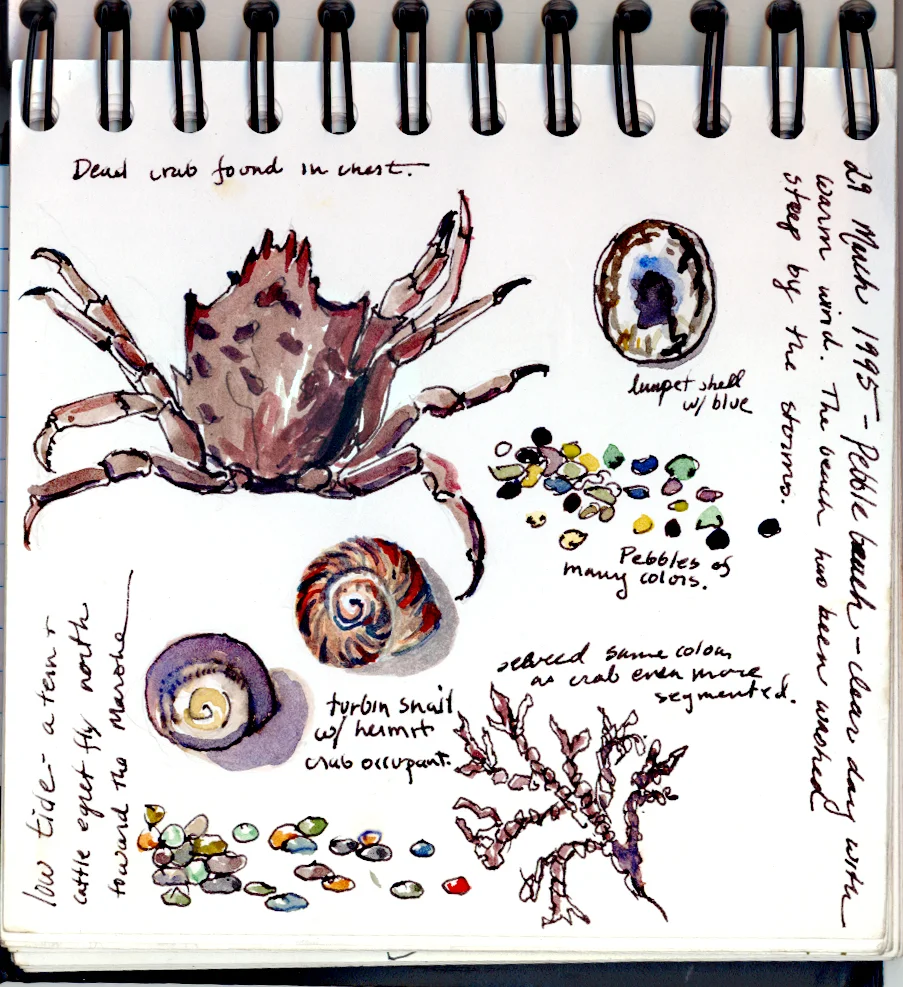 Dead crab found in chest.
29 March 1995 - Pebble beach - clear day with
warm wind. The beach has been washed
steep by the storms.
limpet shell
w/ blue
Pebbles of
many colors.
turbin snail
w/ hermit
crab occupant.
seweed same colour
as crab even more
segmented.
low tide - a tern +
cattle egret fly north
toward the